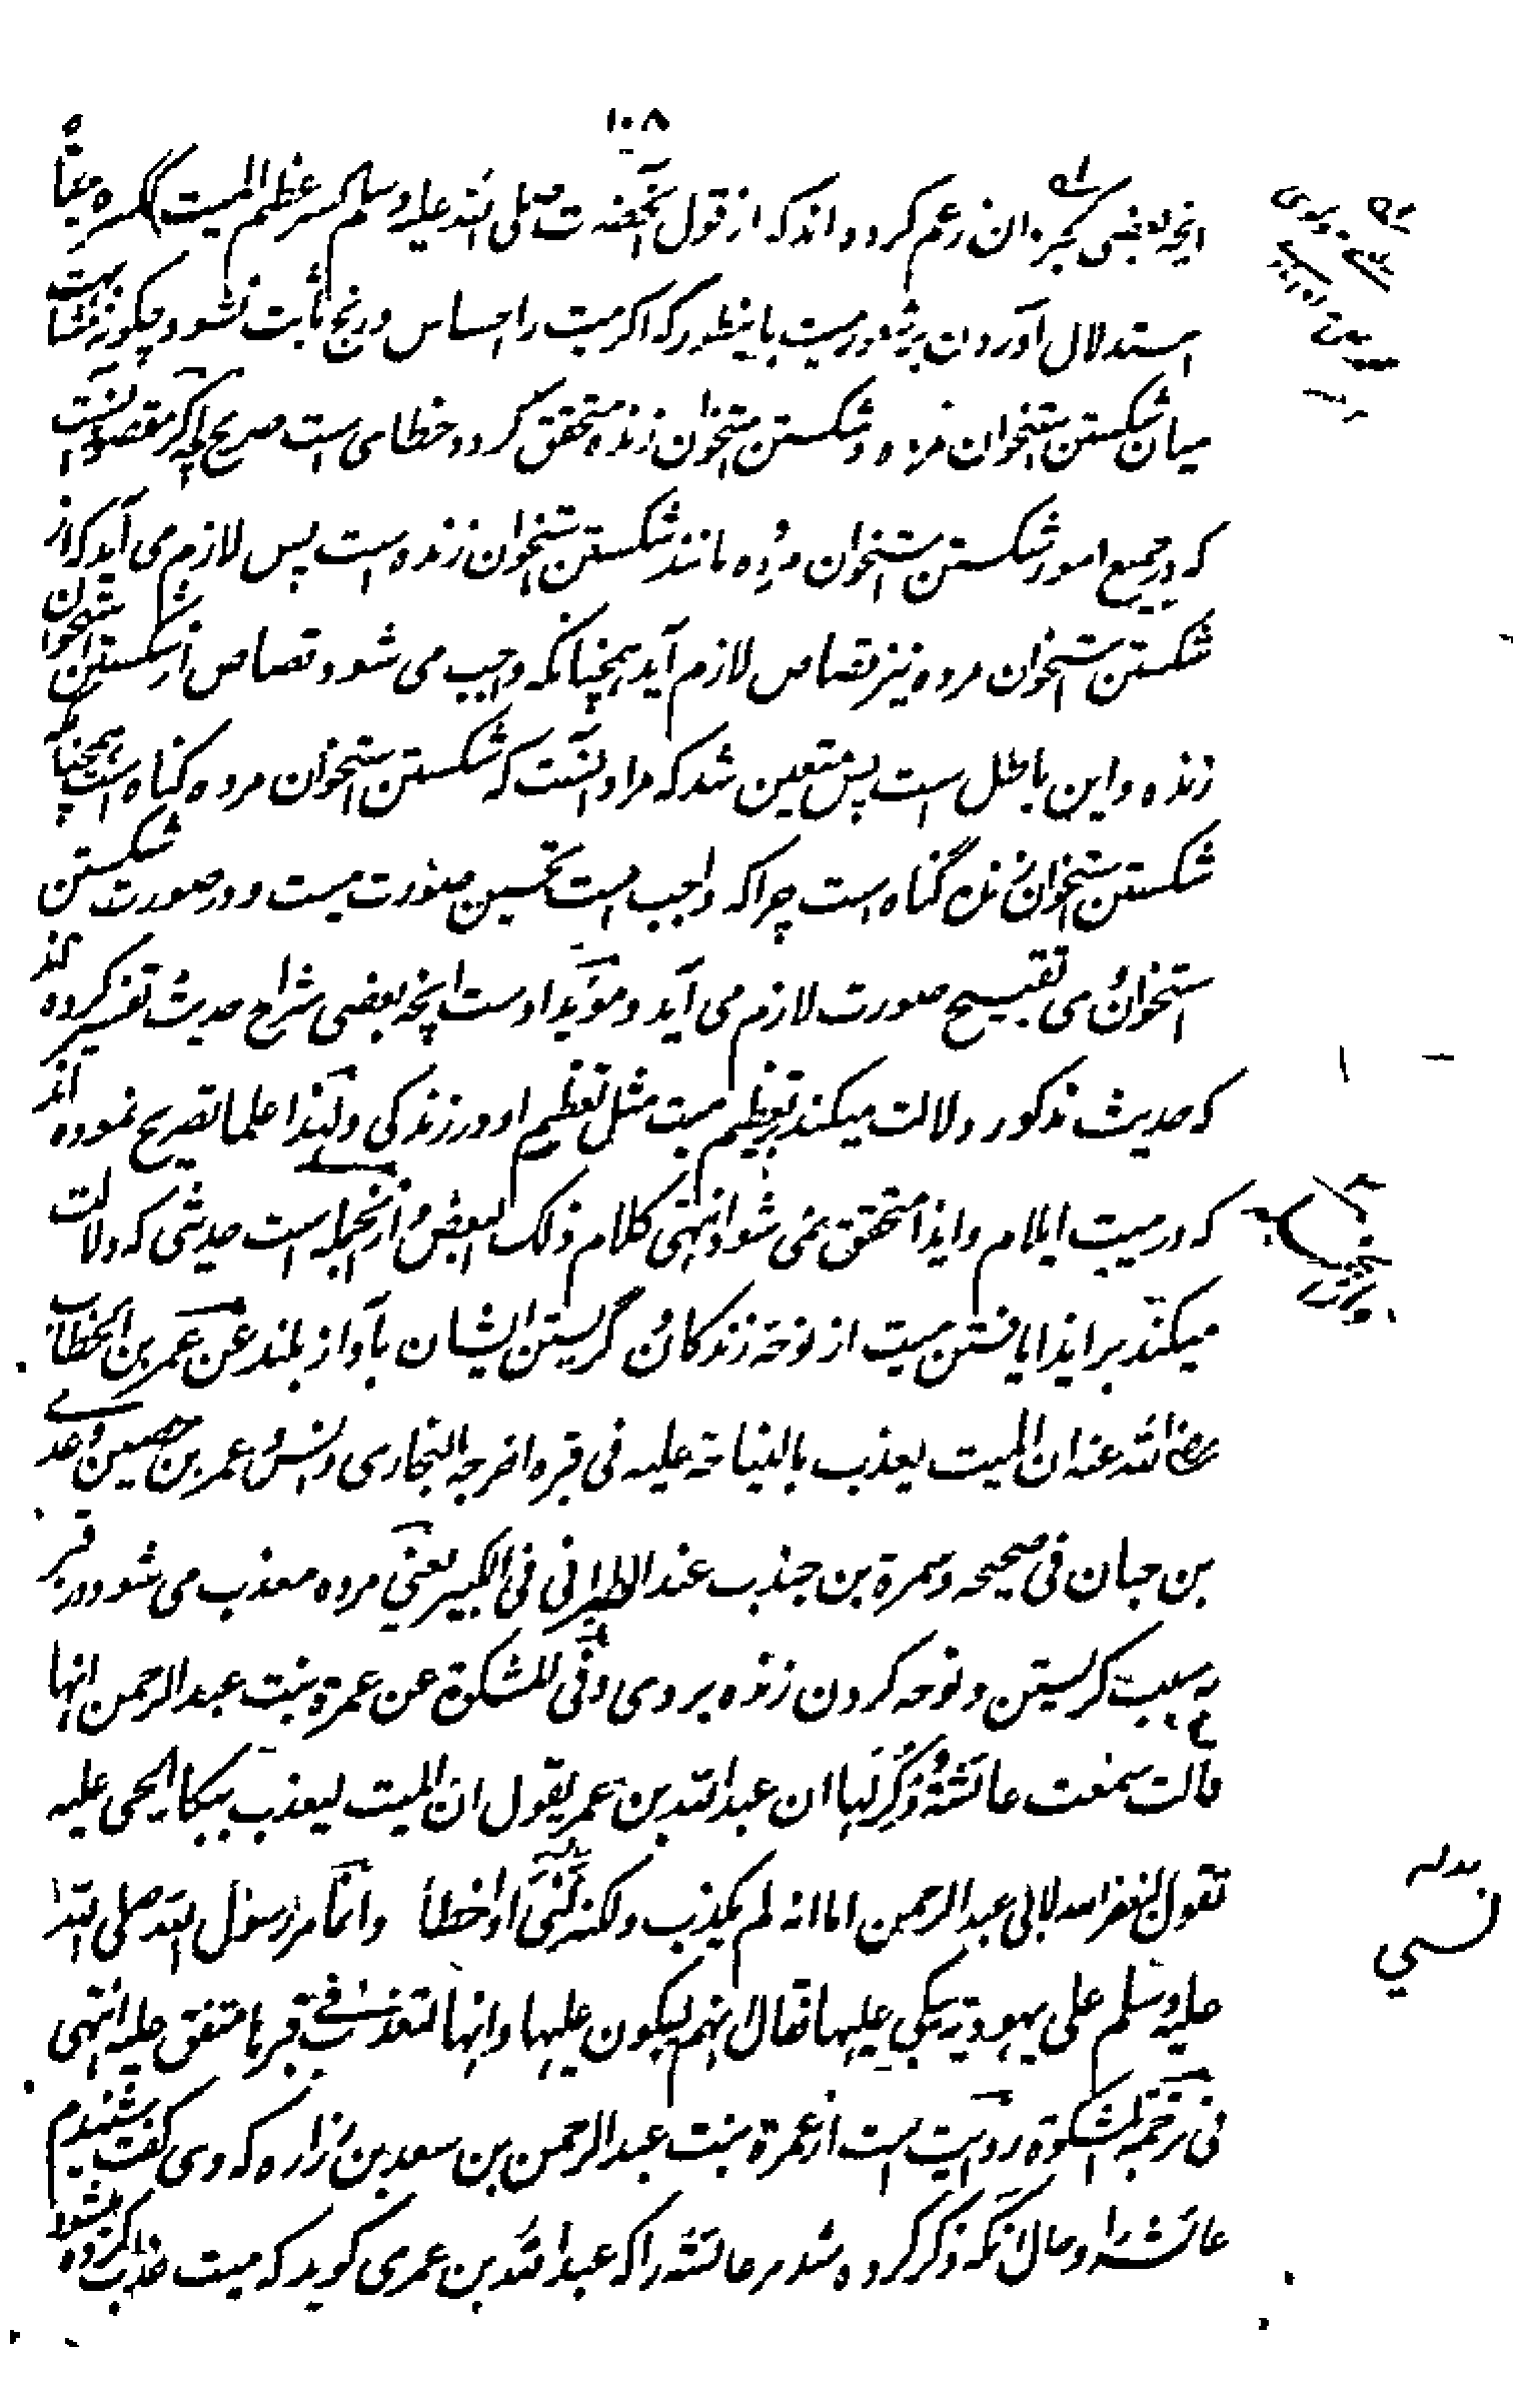 ۱۰۸
انچه بعضی کجروان زعم کرده اند که از قول آنحضرت صلی الله علیه وسلم کسر عظم المیت ککسره حیا
استدلال آوردن بر شعور میت باینطور که اگر میت را احساس و رنج ثابت نشود چگونه مشابهت
میان شکستن استخوان مرده و شکستن استخوان زنده متحقق گردد خطای است صریح چه اگر مقصود آنست
که در جمیع امور شکستن استخوان مرده مانند شکستن استخوان زنده است پس لازم می آید که از
شکستن استخوان مرده نیز قصاص لازم آید همچنانکه واجب می شود قصاص از شکستن استخوان
زنده و این باطل است پس متعین شد که مراد آنست که شکستن استخوان مرده گناه است همچنانکه
شکستن استخوان زنده گناه است چراکه واجب است تحسین صورت میت و در صورت شکستن
استخوان وی تقبیح صورت لازم می آید و مؤید اوست انچه بعضی شراح حدیث تفسیر کرده اند
که حدیث مذکور دلالت میکند بر تعظیم میت مثل تعظیم او در زندگی و لهذا علما تصریح نموده اند
که در میت ایلام و ایذا متحقق نمی شود انتهی کلام ذلک البعض و ازانجمله است حدیثی که دلالت
میکند بر ایذا یافتن میت از نوحه زندگان و گریستن ایشان بآواز بلند عن عمر بن الخطاب
رضی الله عنه ان المیت یعذب بالنیاحة علیه فی قبره اخرجه البخاری و انس و عمر بن حصین عند
بن حبان فی صحیحه و سمرة بن جندب عند الطبرانی فی الکبیر یعنی مرده معذب می شود در قبر
به سبب گریستن و نوحه کردن زنده بر وی و فی المشکوة عن عمرة بنت عبد الرحمن انها
قالت سمعت عائشة و ذکر لها ان عبد الله بن عمر یقول ان المیت لیعذب ببکاء الحی علیه
تقول یغفر الله لابی عبد الرحمن اما انه لم یکذب ولکنه نسی او اخطأ و انما مر رسول الله صلی الله
علیه وسلم علی یهودیة یبکی علیها فقال انهم لیبکون علیها و انها لتعذب فی قبرها متفق علیه انتهی
فی ترجمة المشکوة روایت است از عمرة بنت عبد الرحمن بن سعد بن زراره که وی گفت شنیدم
عائشه را و حال آنکه ذکر کرده شد مر عائشه را که عبد الله بن عمر می گوید که میت عذاب کرده میشود